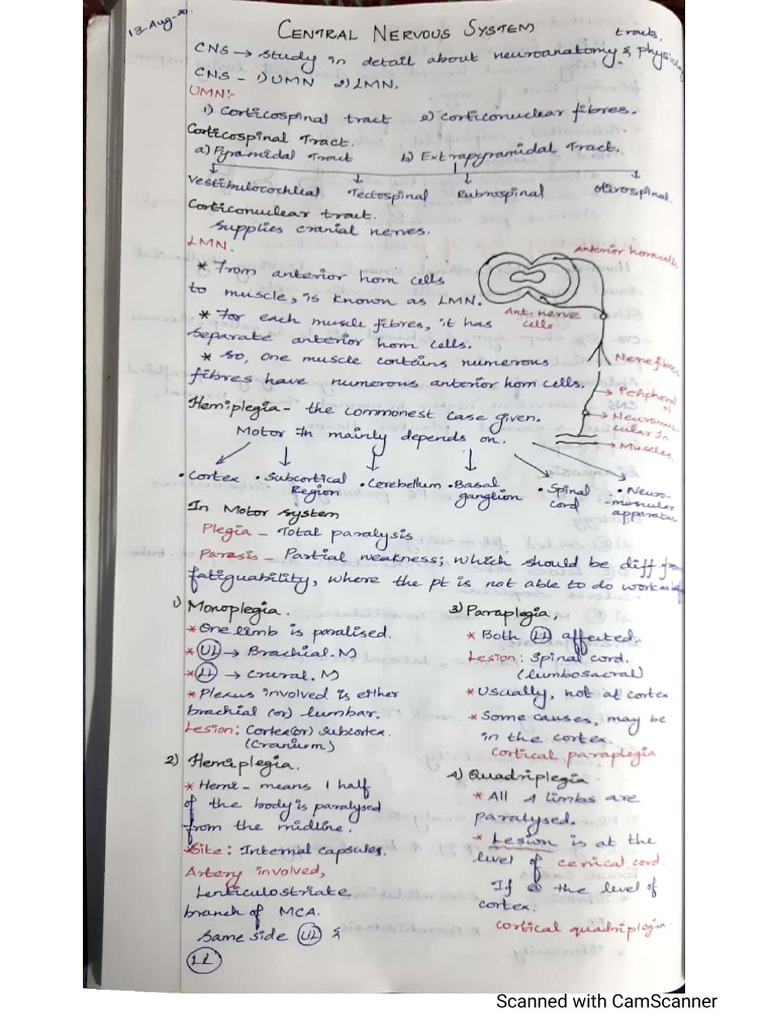 13-Aug-20.
CENTRAL NERVOUS SYSTEM
tracts,
CNS → Study in detail about neuroanatomy & physiology
CNS - 1) UMN 2) LMN.
UMN:-
1) Corticospinal tract 2) Corticonuclear fibres.
Corticospinal Tract.
a) Pyramidal Tract b) Extrapyramidal Tract.
Vestibulocochleal Tectospinal Rubrospinal Olivospinal
Corticonuclear tract.
Supplies cranial nerves.
LMN.
* From anterior horn cells
to muscle, is known as LMN.
* For each muscle fibres, it has
separate anterior horn cells.
* So, one muscle contains numerous
fibres have numerous anterior horn cells.
Anterior horn cells
Ant. nerve
cells
Nerve fibre
→ Peripheral
→ Neuromus
cular Jn
→ Muscles
Hemiplegia - the commonest case given.
Motor Fn mainly depends on.
• Cortex • Subcortical Region • Cerebellum • Basal ganglion • Spinal cord • Neuro-muscular apparatus
In Motor system
Plegia - Total paralysis
Paresis - Partial weakness; which should be diff from
fatiguability, where the pt is not able to do work as
1) Monoplegia.
* One limb is paralised.
* UL → Brachial. M
* LL → Crural. M
* Plexus involved is either
brachial (or) lumbar.
Lesion: Cortex (or) subcortex.
(Cranium)
2) Hemiplegia.
* Hemi - means 1 half
of the body is paralysed
from the midline.
* Site: Internal capsules.
Artery involved,
Lenticulostriate
branch of MCA.
Same side UL &
LL
3) Paraplegia,
* Both LL affected.
Lesion: Spinal cord.
(lumbosacral)
* Usually, not at cortex
* Some causes, may be
in the cortex.
cortical paraplegia
4) Quadriplegia.
* All 4 limbs are
paralysed.
* Lesion is at the
level of cervical cord
If @ the level of
cortex.
cortical quadriplegia
Scanned with CamScanner